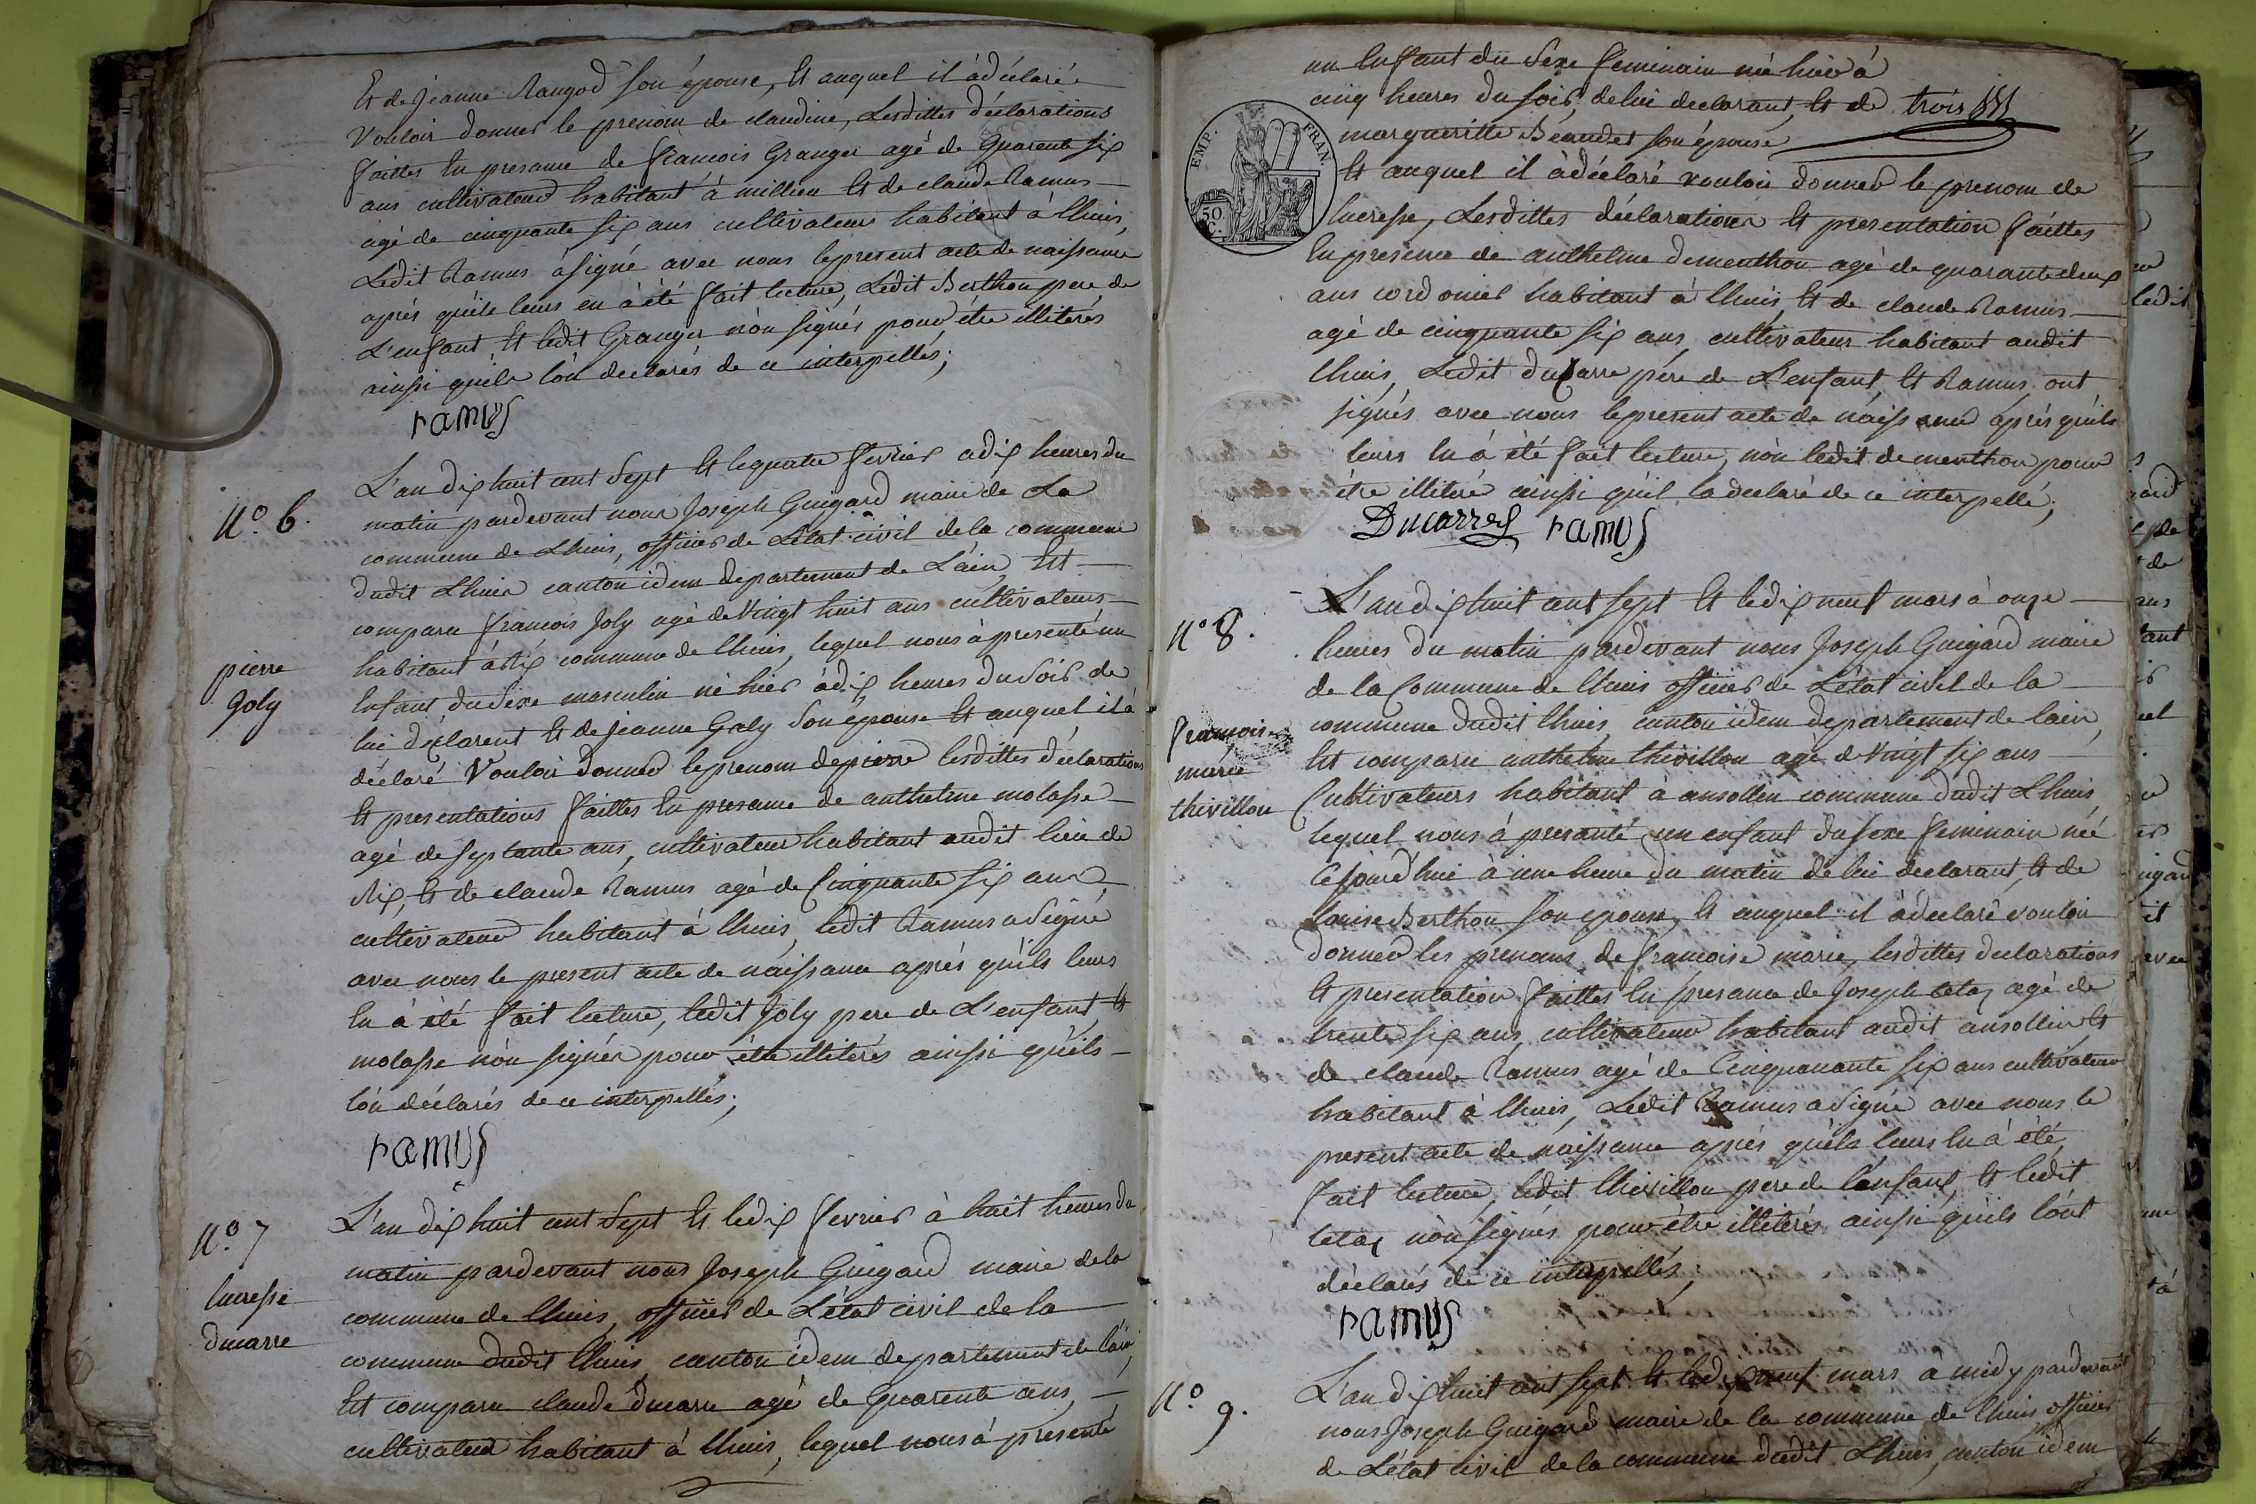 Et de jeanne Rangod son épouse, Et auquel il à déclaré
Vouloir donner le prenom de claudine, Lesdittes déclarations
faittes En presance de francois Granger agé de quarente six
ans cultivateur habitant à millieu Et de claude Ramus
agé de cinquante six ans cultivateur habitant à lhuis,
Ledit Ramus à signé avec nous le present acte de naissance
après qu'ils leurs en à été fait lecture, Ledit Berthon pere de
L'enfant Et ledit Granger n'on signés pour étre illiterés
ainsi quils l'on declarés de ce interpellés;
ramus
N° 6.
L'an dix huit cent Sept Et le quatre fevrier a dix heures du
matin pardevant nous Joseph Guigard maire de La
commune de Lhuis, officier de L'état civil de la commune
dudit Lhuis canton idem departement de L'ain, Est
comparu francois Joly agé de Vingt huit ans cultivateur
pierre
Joly
habitant à Rix commune de lhuis, lequel nous à presenté un
Enfant du Sexe masculin né hier à dix heures du Soir de
lui déclarent Et de jeanne Galy Son épouse Et auquel il à
déclaré Vouloir donner le prenom de pierre lesdittes déclarations
Et presentations faittes En presance de anthelme molasse
agé de septante ans, cultivateur habitant audit lieu de
Rix, Et de claude Ramus agé de Cinquante six ans,
cultivateur habitant à lhuis, ledit Ramus a Signé
avec nous le present acte de naissance après qu'ils leurs
En à été fait lecture, ledit Joly pere de L'enfant Et
molasse n'on signés pour étre illiterés ainsi qu'ils
l'on déclarés de ce interpellés;
ramus
N° 7
L'an dix huit cent Sept Et le dix fevrier à huit heures du
matin pardevant nous Joseph Guigard maire de la
lucresse
ducarre
commune de lhuis, officier de L'état civil de la
commune dudit lhuis canton idem departement de l'ain,
Est comparu claude ducarre agé de quarente ans,
cultivateur habitant à lhuis, lequel nous à présenté
un Enffant du Sexe feminain né hier à
cinq heures du soir, de lui declarant, Et de trois
margueritte Béaudet son épouse
EMP. FRAN.
50 C.
Et auquel il à déclaré vouloir donner le prenom de
lucresse, Lesdittes déclarations Et presentation faittes
En presence de anthelme dementhon agé de quarante deux
ans cordonier habitant à lhuis, Et de claude Ramus
agé de cinquante six ans, cultivateur habitant audit
lhuis, Ledit ducarre pére de L'enfant, Et Ramus ont
signés avec nous le present acte de naissance après qu'ils
leurs En à été fait lecture, n'on ledit dementhon pour
étre illiteré ainsi qu'il la declaré de ce interpellé;
Ducarre ramus
N° 8.
L'an dix huit cent sept Et le dix neuf mars à onze
heures du matin pardevant nous Joseph Guigard maire
de la Commune de lhuis officier de L'état civil de la
commune dudit lhuis, canton idem departement de lain,
françoise
marie
thivillon
Est comparu anthelme thivillon agé de Vingt six ans
Cultivateurs habitant à ansolin commune dudit Lhuis
lequel nous à presanté un enfant du sexe feminain né
Cejourd'hui à une heure du matin de lui declarant, Et de
louise Berthon son epouse, Et auquel il à declaré vouloir
donner les prenoms de francoise marie, lesdittes declarations
Et presentation faittes En presance de Joseph tetaz agé de
trente six ans, cultivateur habitant audit ansollin Et
de claude Ramus agé de Cinquanante six ans cultivateur
habitant à lhuis, Ledit Ramus a Signé avec nous le
present acte de naissance après qu'ils leurs En à été
fait lecture, ledit thivillon pere de l'enfant, Et ledit
tetaz n'on signés pour étre illiterés ainsi qu'ils l'ont
déclarés de ce interpellés;
ramus
N° 9.
L'an dix huit cent sept Et le dix neuf mars à midy pardevant
nous Joseph Guigard maire de la commune de lhuis officier
de L'état civil de la commune dudit Lhuis, canton idem